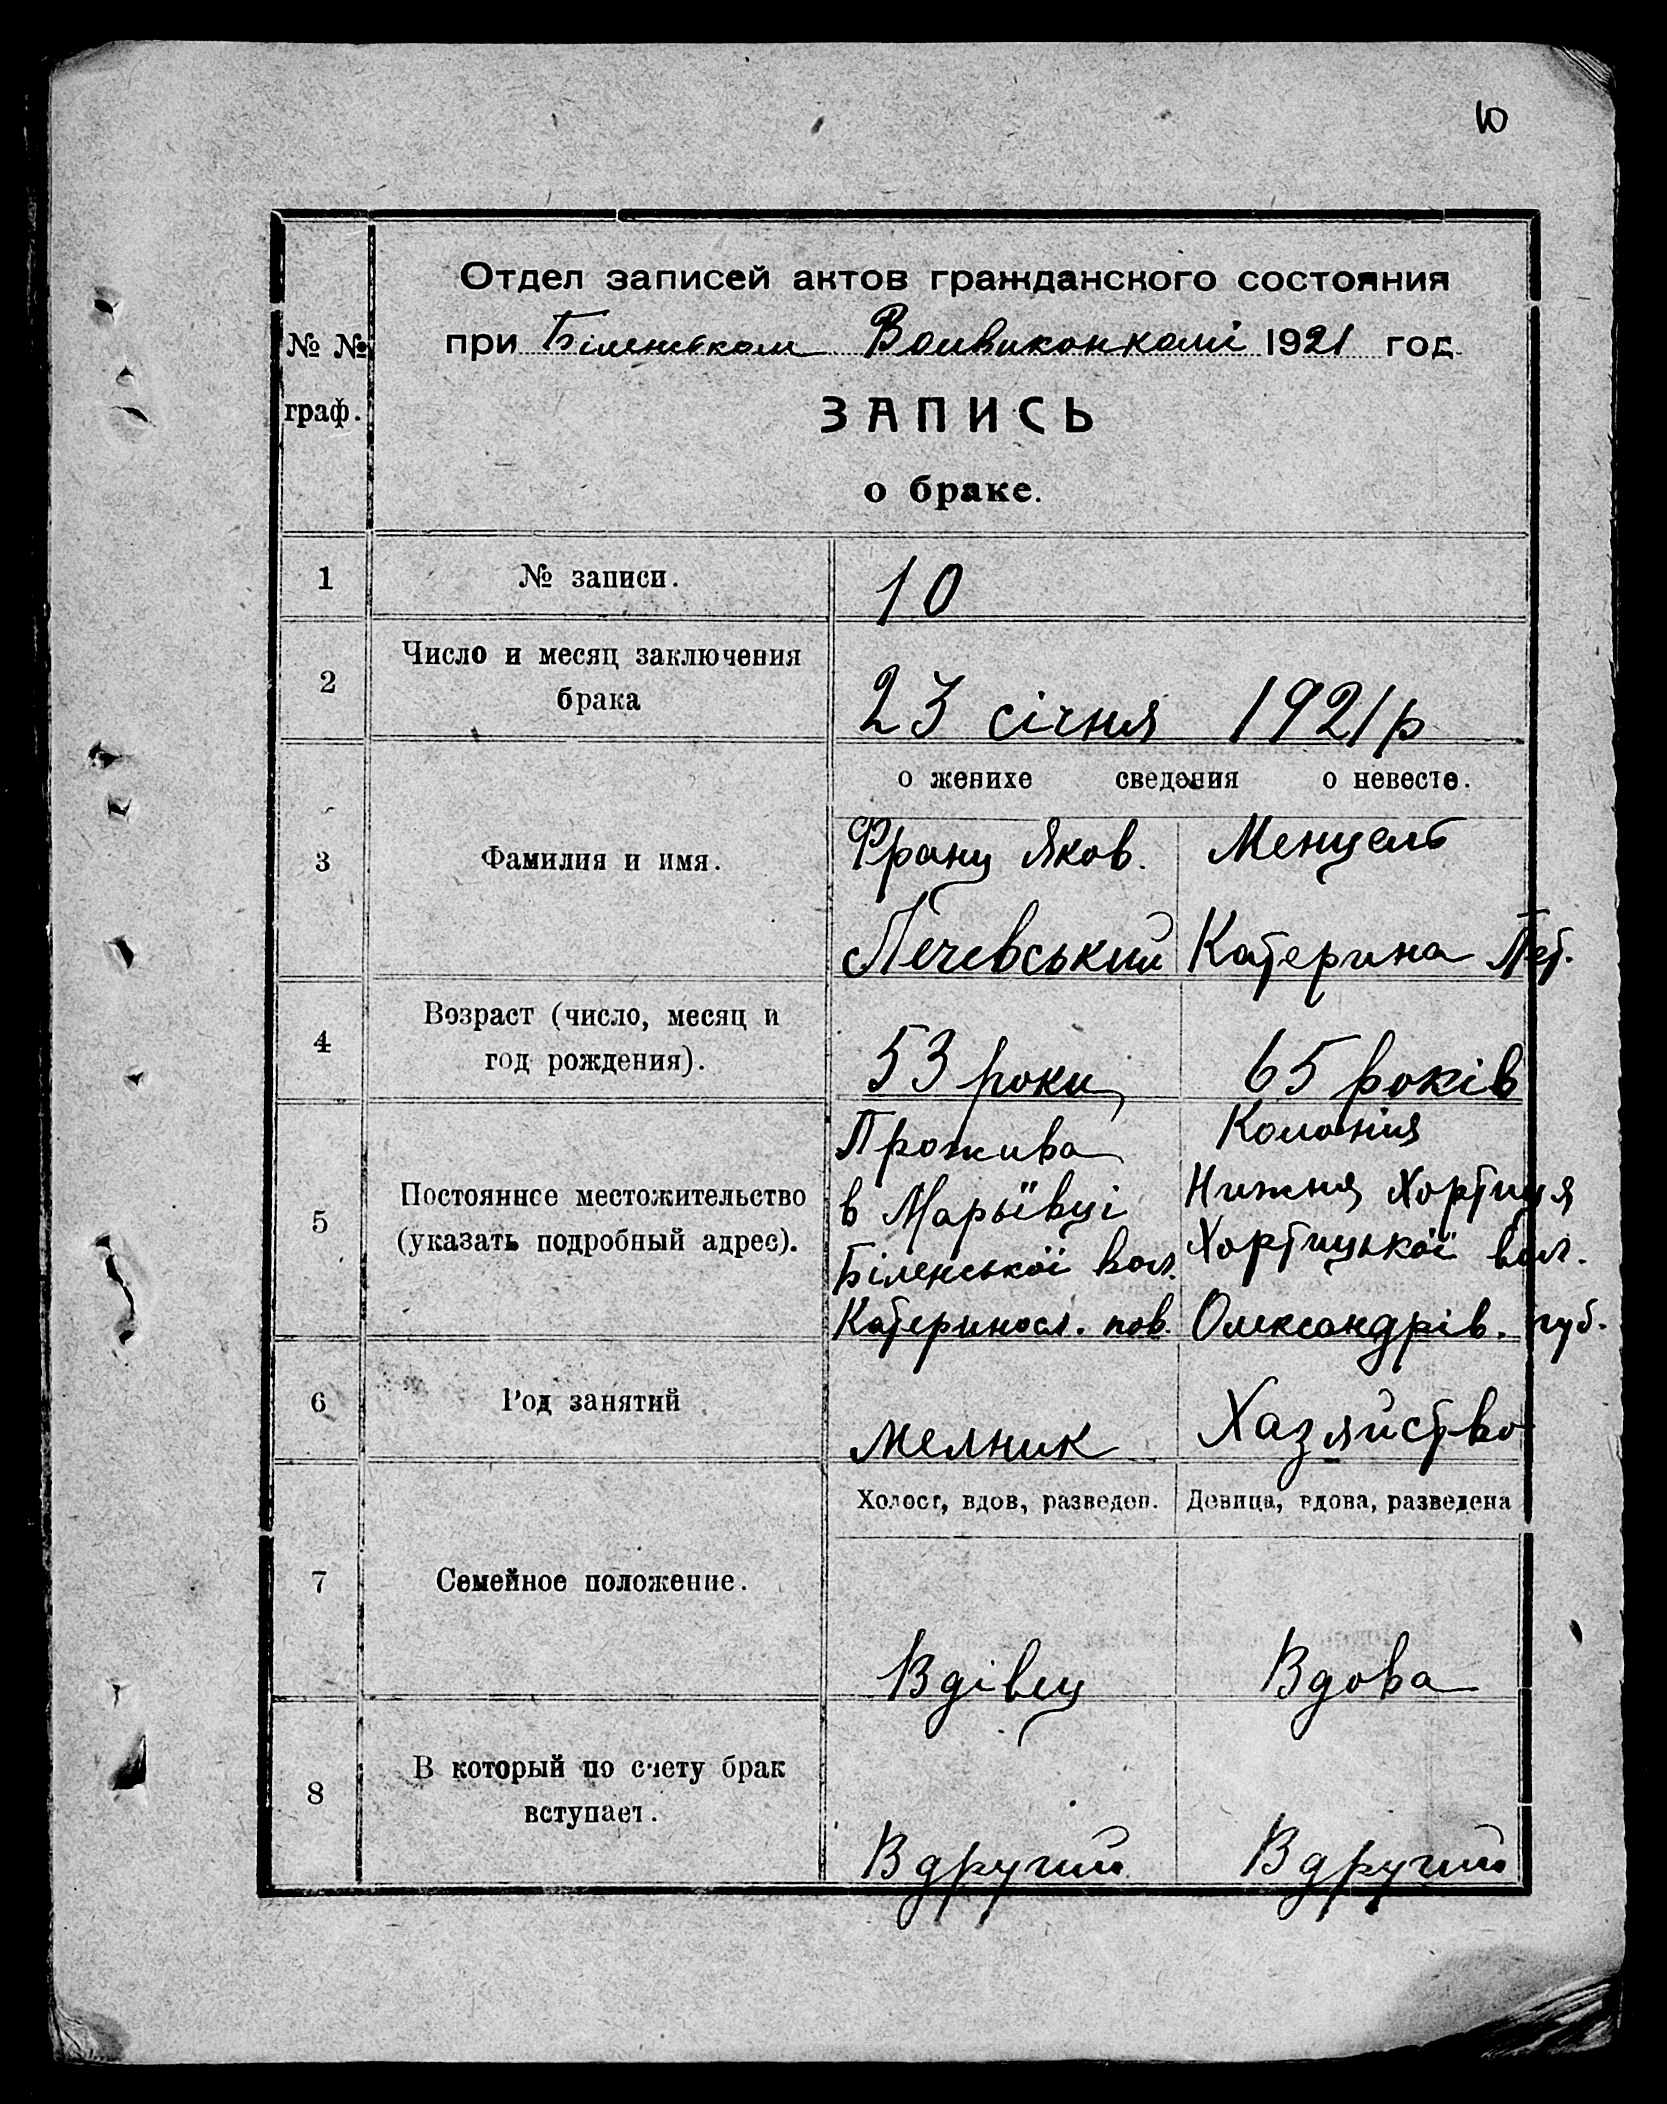 10
Отдел записей актов гражданского состояния
№ № при Біленськом Волвиконкомі 1921 год
граф. ЗАПИСЬ
о браке.
1 № записи. 10
2 Число и месяц заключения
брака 23 січня 1921 р
о женихе сведения о невесте.
3 Фамилия и имя. Франц Яков. Менцель
Печевський Катерина Пет.
4 Возраст (число, месяц и
год рождения). 53 роки 65 років
Прожива Колонія
5 Постоянное местожительство в Марьївці Нижня Хортиця
(указать подробный адрес). Біленської вол. Хортицької вол.
Катериносл. пов. Олександрів. губ.
6 Род занятий мелник Хазяйство
Холост, вдов, разведен. Девица, вдова, разведена
7 Семейное положение.
Вдівец Вдова
8 В который по счету брак
вступает.
Вдругий Вдругий